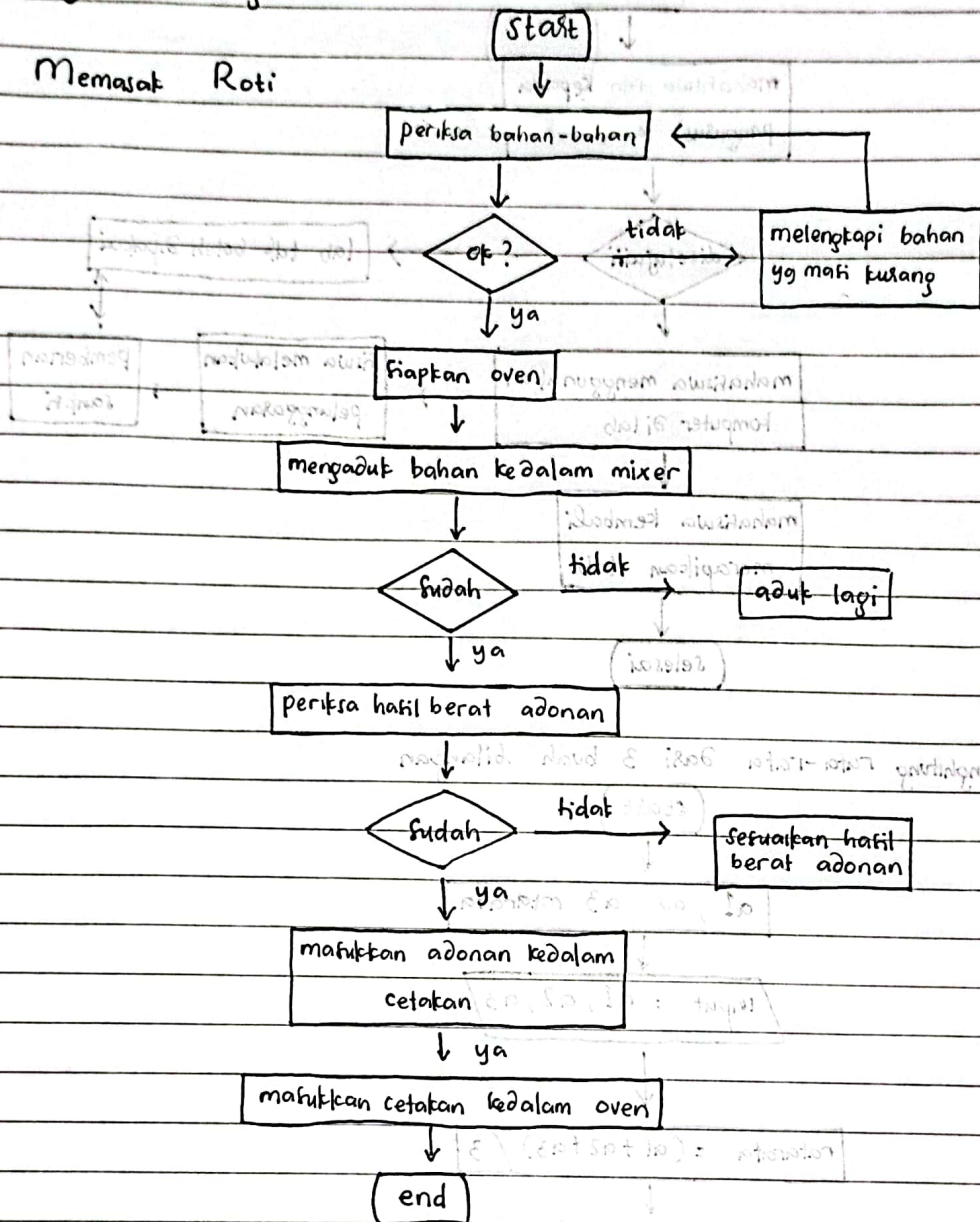 start
Memasak Roti
periksa bahan-bahan
ok?
tidak
melengkapi bahan
yg masi kurang
ya
siapkan oven
mengaduk bahan kedalam mixer
sudah
tidak
aduk lagi
ya
periksa hasil berat adonan
sudah
tidak
sesuaikan hasil
berat adonan
ya
masukkan adonan kedalam
cetakan
ya
masukkan cetakan kedalam oven
end